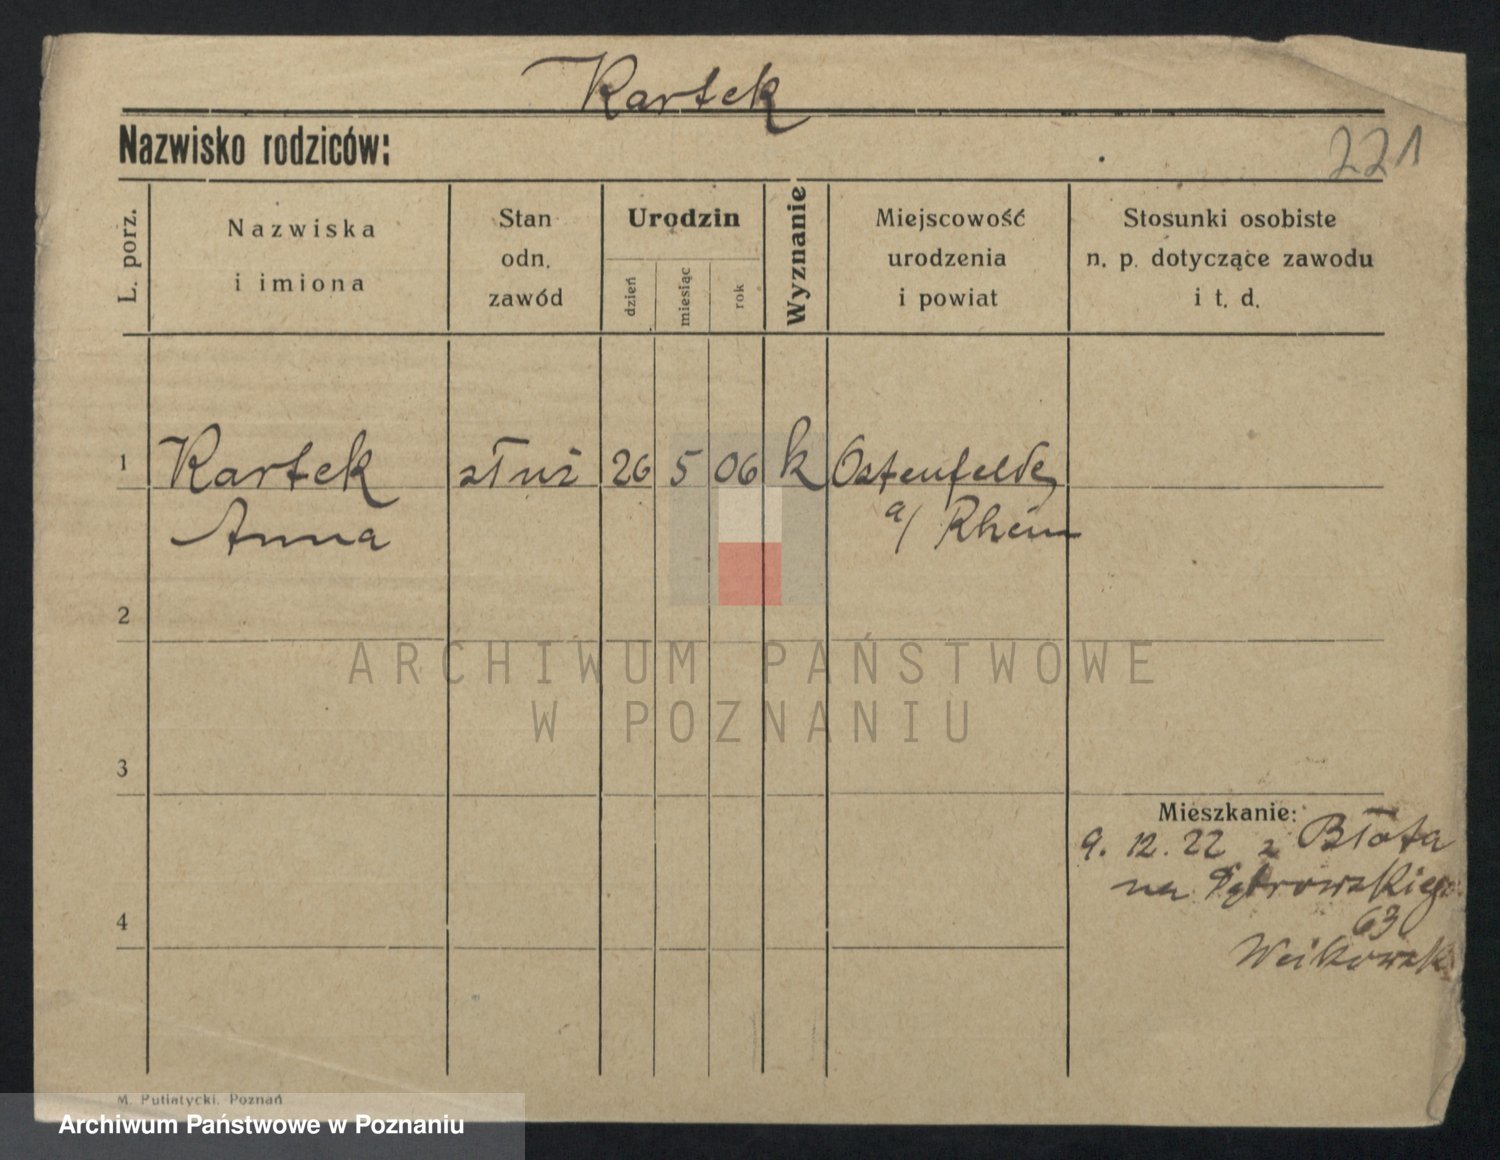 Kartek
Nazwisko rodziców:
221
L. porz.
Nazwiska
i imiona
Stan
odn.
zawód
Urodzin
dzień
miesiąc
rok
Wyznanie
Miejscowość
urodzenia
i powiat
Stosunki osobiste
n. p. dotyczące zawodu
i t. d.
1 Kartek służ 26 5 06 k Ostenfelde
Anna a/ Rhein
2
ARCHIWUM PAŃSTWOWE
W POZNANIU
3
Mieszkanie:
9. 12. 22 z Błota
na Dąbrowskiego
63
4
M. Putiatycki, Poznań
Archiwum Państwowe w Poznaniu